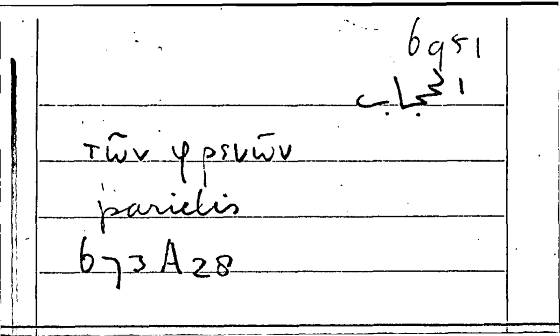 6951
الحجاب
τῶν φρενῶν
parietis
673 A 28